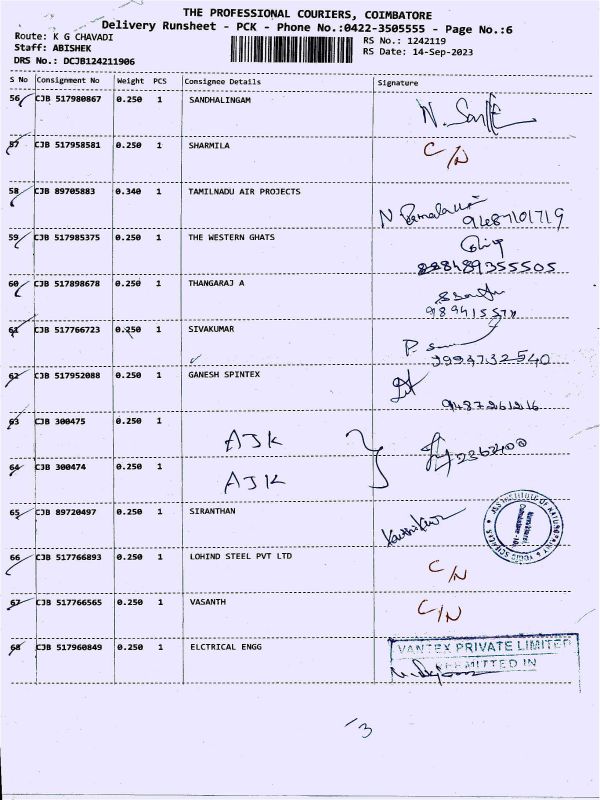 THE PROFESSIONAL COURIERS, COIMBATORE
Delivery Runsheet - PCK - Phone No.:0422-3505555 - Page No.:6
Route: K G CHAVADI
RS No.: 1242119
Staff: ABISHEK
RS Date: 14-Sep-2023
DRS No.: DCJB124211906
S No Consignment No Weight PCS Consignee Details Signature
56 CJB 517980867 0.250 1 SANDHALINGAM
57 CJB 517958581 0.250 1 SHARMILA C/N
58 CJB 89705883 0.340 1 TAMILNADU AIR PROJECTS
9487101719
59 CJB 517985375 0.250 1 THE WESTERN GHATS
8489355505
60 CJB 517898678 0.250 1 THANGARAJ A
61 CJB 517766723 0.250 1 SIVAKUMAR
62 CJB 517952088 0.250 1 GANESH SPINTEX
63 CJB 300475 0.250 1
AJK
64 CJB 300474 0.250 1
AJK
65 CJB 89720497 0.250 1 SIRANTHAN
66 CJB 517766893 0.250 1 LOHIND STEEL PVT LTD C/N
67 CJB 517766565 0.250 1 VASANTH C/N
68 CJB 517960849 0.250 1 ELCTRICAL ENGG
VANTEX PRIVATE LIMITED
PERMITTED IN